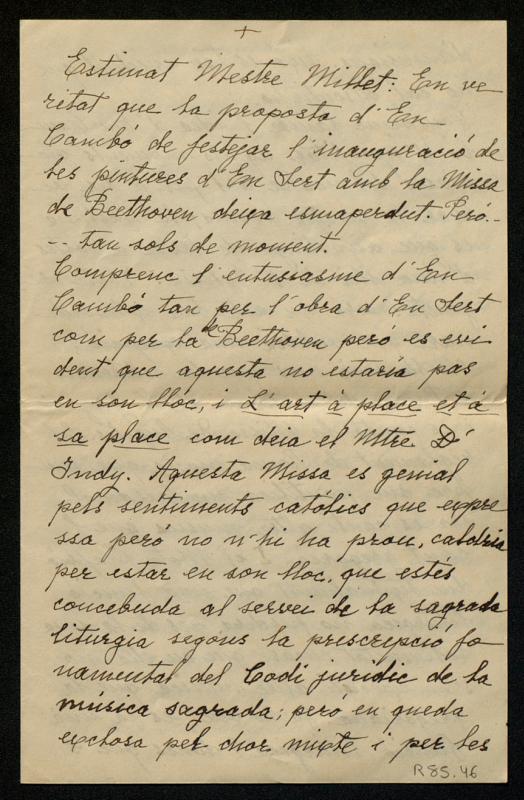 +
Estimat Mestre Millet: En ve
ritat que la proposta d'En
Cambó de festejar l'inauguració de
les pintures d'En Sert amb la Missa
de Beethoven deixa esmaperdut. Peró..
-- tan sols de moment.
Comprenc l'entusiasme d'En
Cambó tan per l'obra d'En Sert
com per la de Beethoven peró es evi
dent que aquesta no estaría pas
en son lloc, i L'art à place et à
sa place com deia el Mtre. D'
Indy. Aquesta Missa es genial
pels sentiments catòlics que expre
ssa peró no n'hi ha prou, caldria
per estar en son lloc, que estés
concebuda al servei de la sagrada
liturgia segons la prescripció fo
namental del Codi juridic de la
música sagrada; peró en queda
exclosa pel chor mixte i per les
R 85. 46